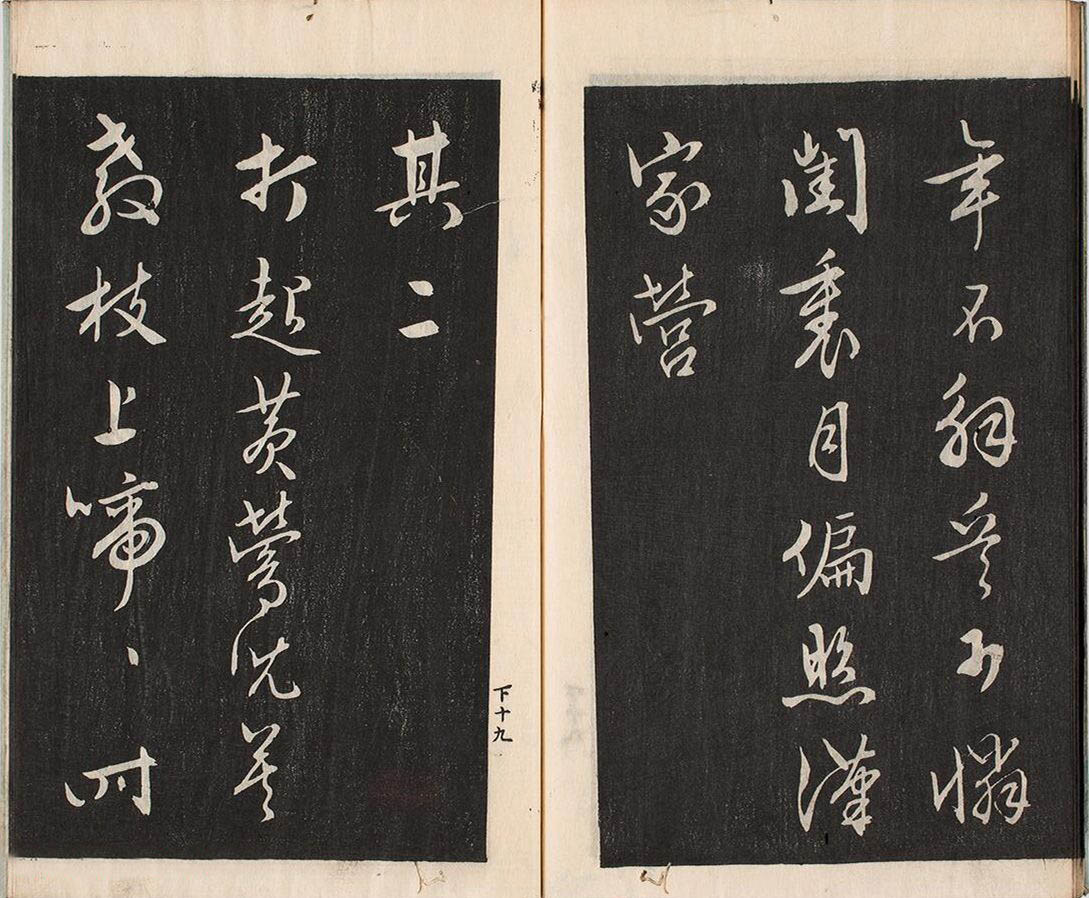 年不解兵可憐
閨裏月偏照漢
家營
其二
打起黃鶯兒莫
教枝上啼丶時
下十九